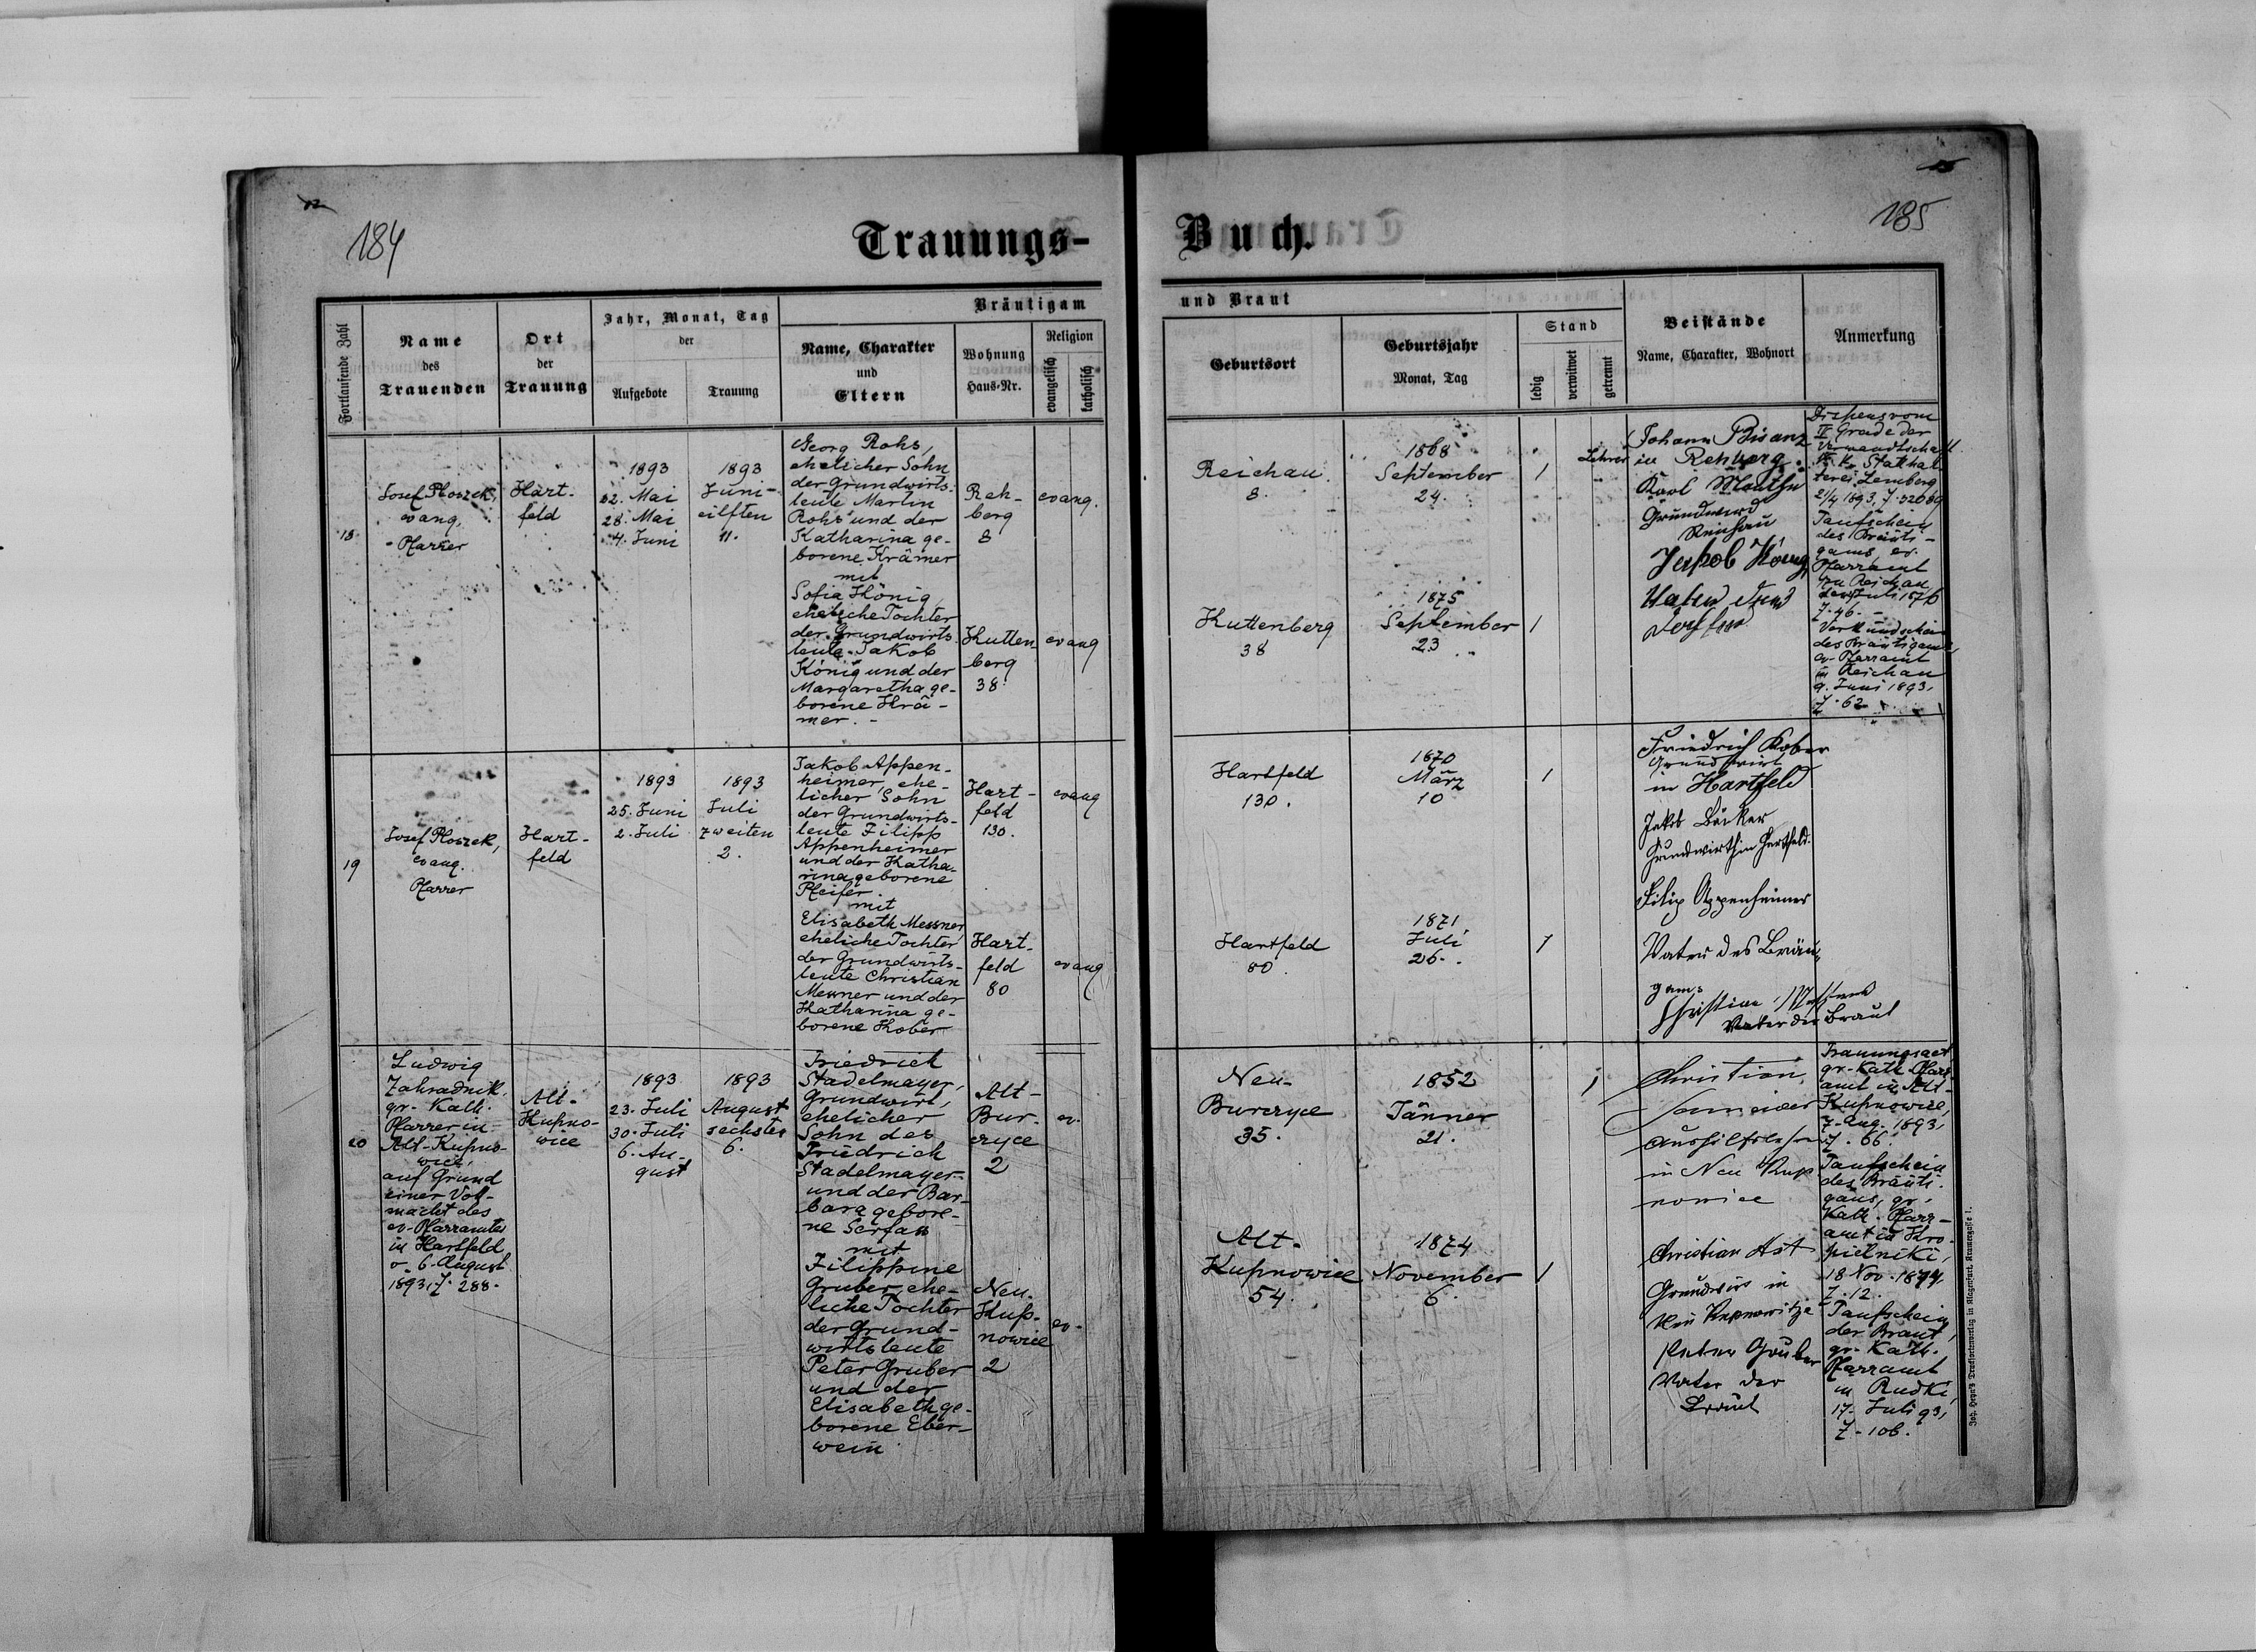 184
185
Trauungs-
Buch.
Fortlaufende Zahl
Name
des
Trauenden
Ort
der
Trauung
Jahr, Monat, Tag
der
Aufgebote
Trauung
Bräutigam
Name, Charakter
und
Eltern
Wohnung
Haus-Nr.
Religion
evangelisch
katholisch
und Braut
Geburtsort
Geburtsjahr
Monat, Tag
Stand
ledig
verwitwet
getrennt
Beistände
Name, Charakter, Wohnort
Anmerkung
18
Josef Ploszek,
evang.
Pfarrer
Hart-
feld
1893
22. Mai
28. Mai
4. Juni
1893
Juni
eilften
11.
Georg Rohs,
ehelicher Sohn
der Grundwirts-
leute Martin
Rohs und der
Katharina ge-
borene Krämer
mit
Sofia König,
eheliche Tochter
der Grundwirts-
leute Jakob
König und der
Margaretha ge-
borene Krä-
mer. -
Reh-
berg
8
evang.
Kutten
berg
38
evang
Reichau
8.
1868
September
24.
1
Kuttenberg
38
1875
September
23
1
Johann Bisanz
Lehrer in Rehberg.
Karl
Grundwird
Reichau
Jakob König
Vater
Dispens vom
II Grade der
Verwandtschaft
K. K. Statthal
terei Lemberg
21/4 1893, Z.
Taufschein
des Bräuti-
gams, ev.
Pfarramt
zu Reichau
Juli 1876
Z. 46. -
Verkündschein
des Bräutigams,
ev. Pfarramt
in Reichau
9. Juni 1893,
Z. 62
19
Josef Ploszek,
evang.
Pfarrer
Hart-
feld
1893
25. Juni
2. Juli
1893
Juli
zweiten
2.
Jakob Appen-
heimer, ehe-
licher Sohn
der Grundwirts-
leute Filipp
Appenheimer
und der Katha-
rina geborene
Pfeifer.
mit
Elisabeth Messner,
eheliche Tochter
der Grundwirts-
leute Christian
Messner und der
Katharina ge-
borene Kober
Hart-
feld
130.
evang
Hart-
feld
80
evang
Hartfeld
130.
1870
März
10
1
Hartfeld
80.
1871
Juli
26.
1
Friedrich Kober
Grundwirt
in Hartfeld
Jakob Bäcker
Grundwirth in Hartfeld.
Filip Appenheimer
Vater des Bräu
gams
Christian
Vater der Braut
20
Ludwig
Zahradnik,
gr. Kath.
Pfarrer in
Alt-Kupno-
wice,
auf Grund
einer Vol-
macht des
ev. Pfarramtes
in Hartfeld
v. 6. August
1893, Z. 288.
Alt-
Kupno-
wice
1893
23. Juli
30. Juli
6. Au-
gust
1893
August
sechsten
6.
Friedrich
Stadelmayer,
Grundwirt,
ehelicher
Sohn des
Friedrich
Stadelmayer
und der Bar-
bara gebore-
ne Serfass
mit
Filippine
Gruber, ehe-
liche Tochter
der Grund-
wirtsleute
Peter Gruber
und der
Elisabeth ge-
borene Eber-
wein
Alt-
Bur-
czyce
2
ev.
Neu-
Kup-
nowice
2
ev.
Neu-
Burczyce
35.
1852
Jänner
21.
1
Alt-
Kupnowice
54.
1874
November
6.
1
Christian
Schneider
Aushilfslehrer
in Neu Kup
nowice
Christian Ast
Grundwirt in
Neu Kupnowitze
Peter Gruber
Vater der
Braut
Trauungsact
gr. Kath. Pfarr-
amt in Alt-
Kupnowice,
7. Aug. 1893,
Z. 66.
Taufschein
des Bräuti-
gams, gr.
Kath. Pfarr-
amt in Kro-
pielniki,
18 Nov. 1874
Z. 12.
Taufschein
der Braut,
gr. Kath.
Pfarramt
in Rudki,
17. Juli 93,
Z. 106.
Joh. Heyn's Drucksortenverlag in Klagenfurt, Kramergasse 1.